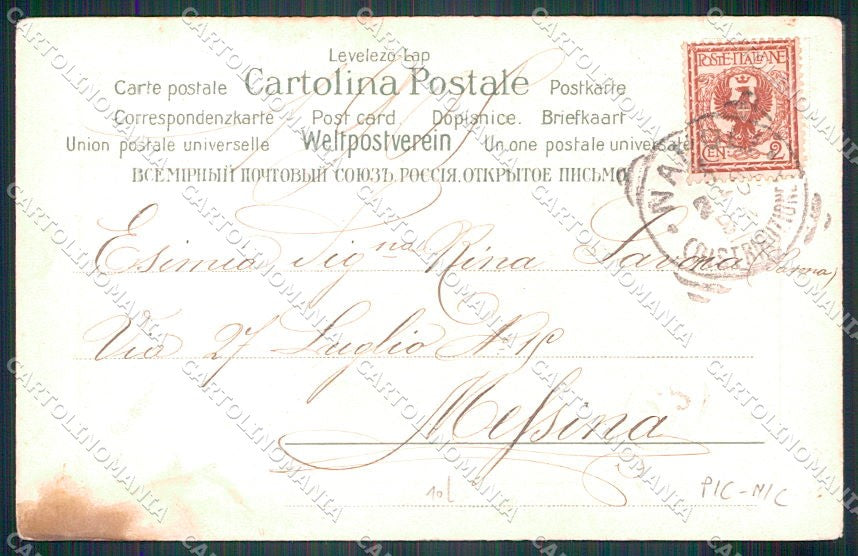 Levelező-Lap
Carte postale Cartolina Postale Postkarte
Correspondenzkarte Post card. Dopisnice. Briefkaart
Union postale universelle Weltpostverein Un.one postale universale
ВСЕМІРНЫЙ ПОЧТОВЫЙ СОЮЗЪ. РОССІЯ. ОТКРЫТОЕ ПИСЬМО
POSTE·ITALIANE
CEN 2
Esimia Sig.na Rina Savoia
Via 27 Luglio N.
Messina
10L
PIC-NIC
CARTOLINOMANIA